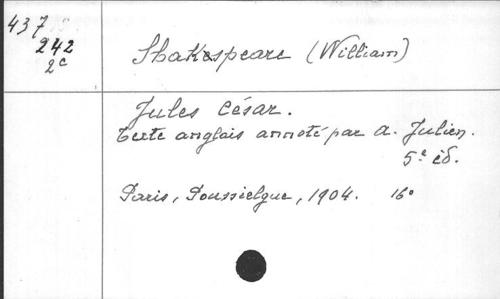 437
242
2c
Shakespeare (William)
Jules César.
texte anglais annoté par A. Julien.
5e éd.
Paris, Poussielgue, 1904. 16°